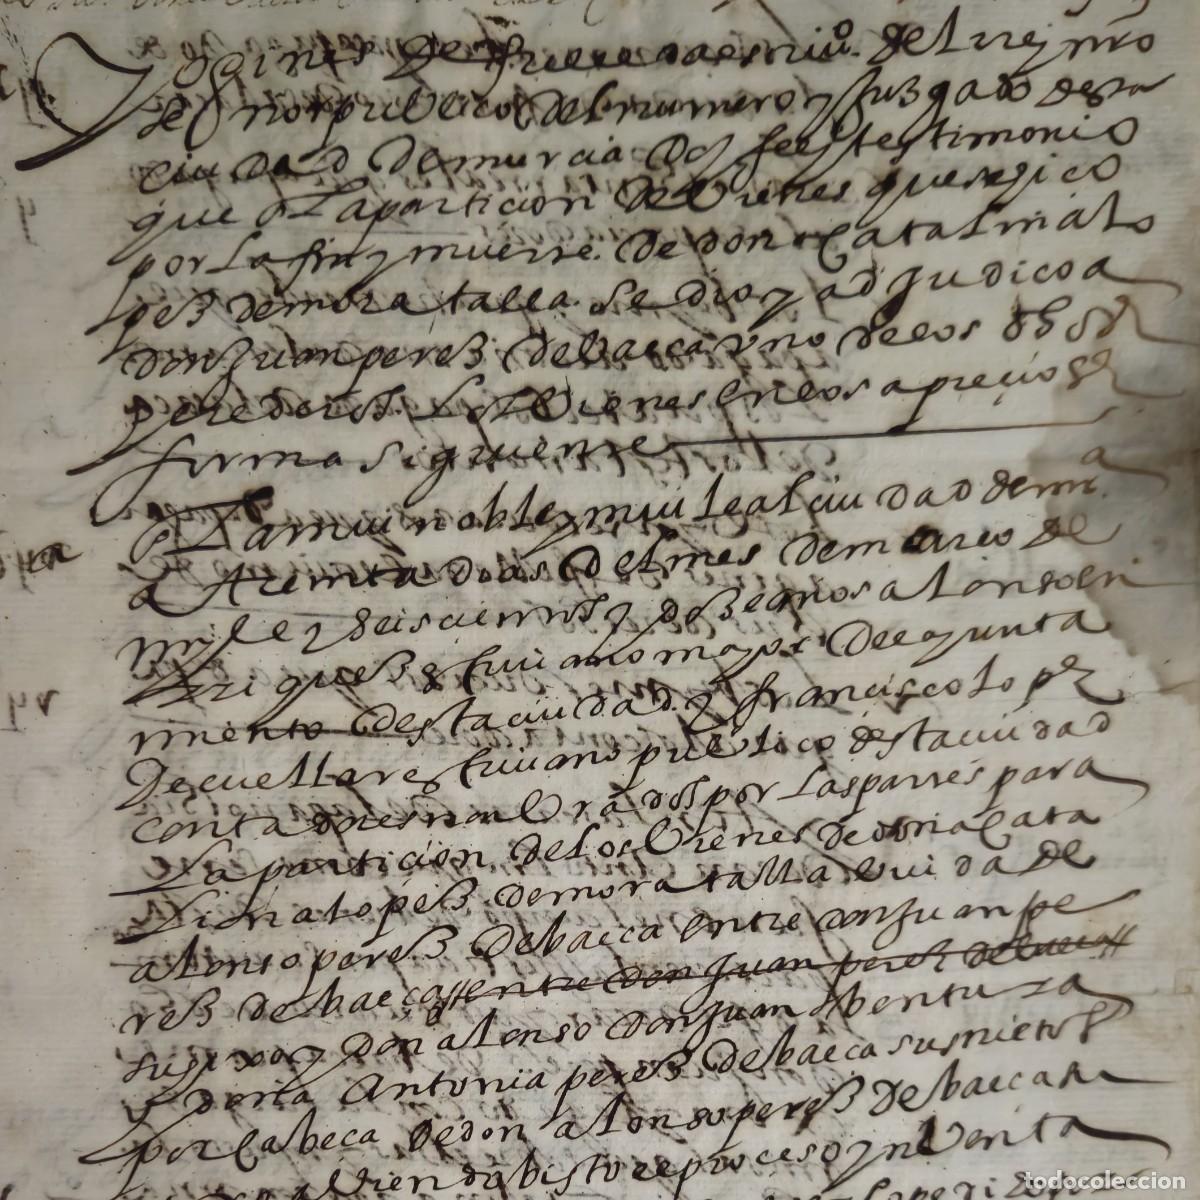 Yo gines de escriuº del rey nro
señor publico del numero y Juzgado desta
ciudad de murcia doy fee y testimonio
que en la particion de bienes que se yço
por la fin y muerte de doña Catalina Lo
pez de moratalla se dio y adjudico a
don Juan perez de baeca vno de los dhos
herederos los bienes en los aprecios y
forma siguiente
En La mui noble y mui leal ciudad de mur
a treinta dias del mes de março de
myle y seiscientos y doze años alonso en
rriquez escriuano mayor del ayunta
miento desta ciudad y francisco Lopez
de cuellar escriuano publico desta ciudad
contadores nonbrados por las partes para
la particion de los bienes de doña Cata
Lina Lopez de moratalla biuda de
alonso perez de baeca entre don Juan pe
rez de baeca entre don Juan perez de baeca
su yxo y don alonso don Juan bentura
y doña Antonia perez de baeca sus nietos
por cabeca de don alonso perez de baeca su
abiendo bisto el proceso ynbenta
todocoleccion